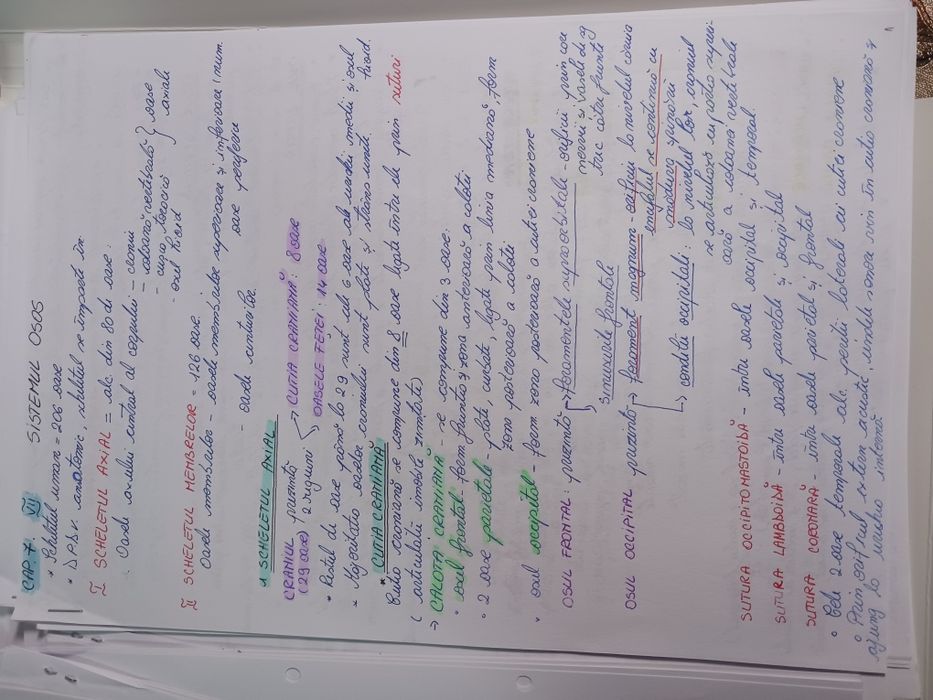 CAP. 7 III SISTEMUL OSOS
* Scheletul uman = 206 oase
* D.p.d.v. anatomic, scheletul se împarte în
I SCHELETUL AXIAL = alc. din 80 de oase.
Oasele axului central al corpului - craniu
- coloană vertebrală
- cușca toracică } oase axiale
- osul hioid
II SCHELETUL MEMBRELOR = 126 oase.
Oasele membrelor - oasele membrelor superioare și inferioare (num. oase periferice
- oasele centurilor.
1 SCHELETUL AXIAL
CRANIUL prezintă → CUTIA CRANIANĂ: 8 oase
(29 oase) 2 regiuni → OASELE FEȚEI: 14 oase
* Restul de oase până la 29 sunt cele 6 oase ale urechii medii și osul hioid.
* Majoritatea oaselor craniului sunt plate și strâns unite.
* CUTIA CRANIANĂ
Cutia craniană se compune din 8 oase legate între ele prin suturi
(articulații imobile zimțate)
→ CALOTA CRANIANĂ - se compune din 3 oase.
• osul frontal - form. fruntea și zona anterioară a calotei
• 2 oase parietale - plate, curbate, legate prin linia mediană, form zona posterioară a calotei
• osul occipital - form zona posterioară a cutiei craniene
OSUL FRONTAL: prezintă → foramentele supraorbitale - orificii prin care nervii și vasele de sg trec către frunte
sinusurile frontale
OSUL OCCIPITAL prezintă → forament magnum - orificiu la nivelul căruia encefalul se continuă cu măduva spinării
→ condilii occipitali: la nivelul lor, craniul se articulează cu partea superioară a coloanei vertebrale
SUTURA OCCIPITOMASTOIDĂ - între oasele occipital și temporal.
SUTURA LAMBDOIDĂ - între oasele parietale și occipital
SUTURA CORONARĂ - între oasele parietal și frontal
• Cele 2 oase temporale alc. pereții laterali ai cutiei craniene
• Prin orificiul extern acustic, undele sonore vin în cutia craniană și
ajung la urechea internă